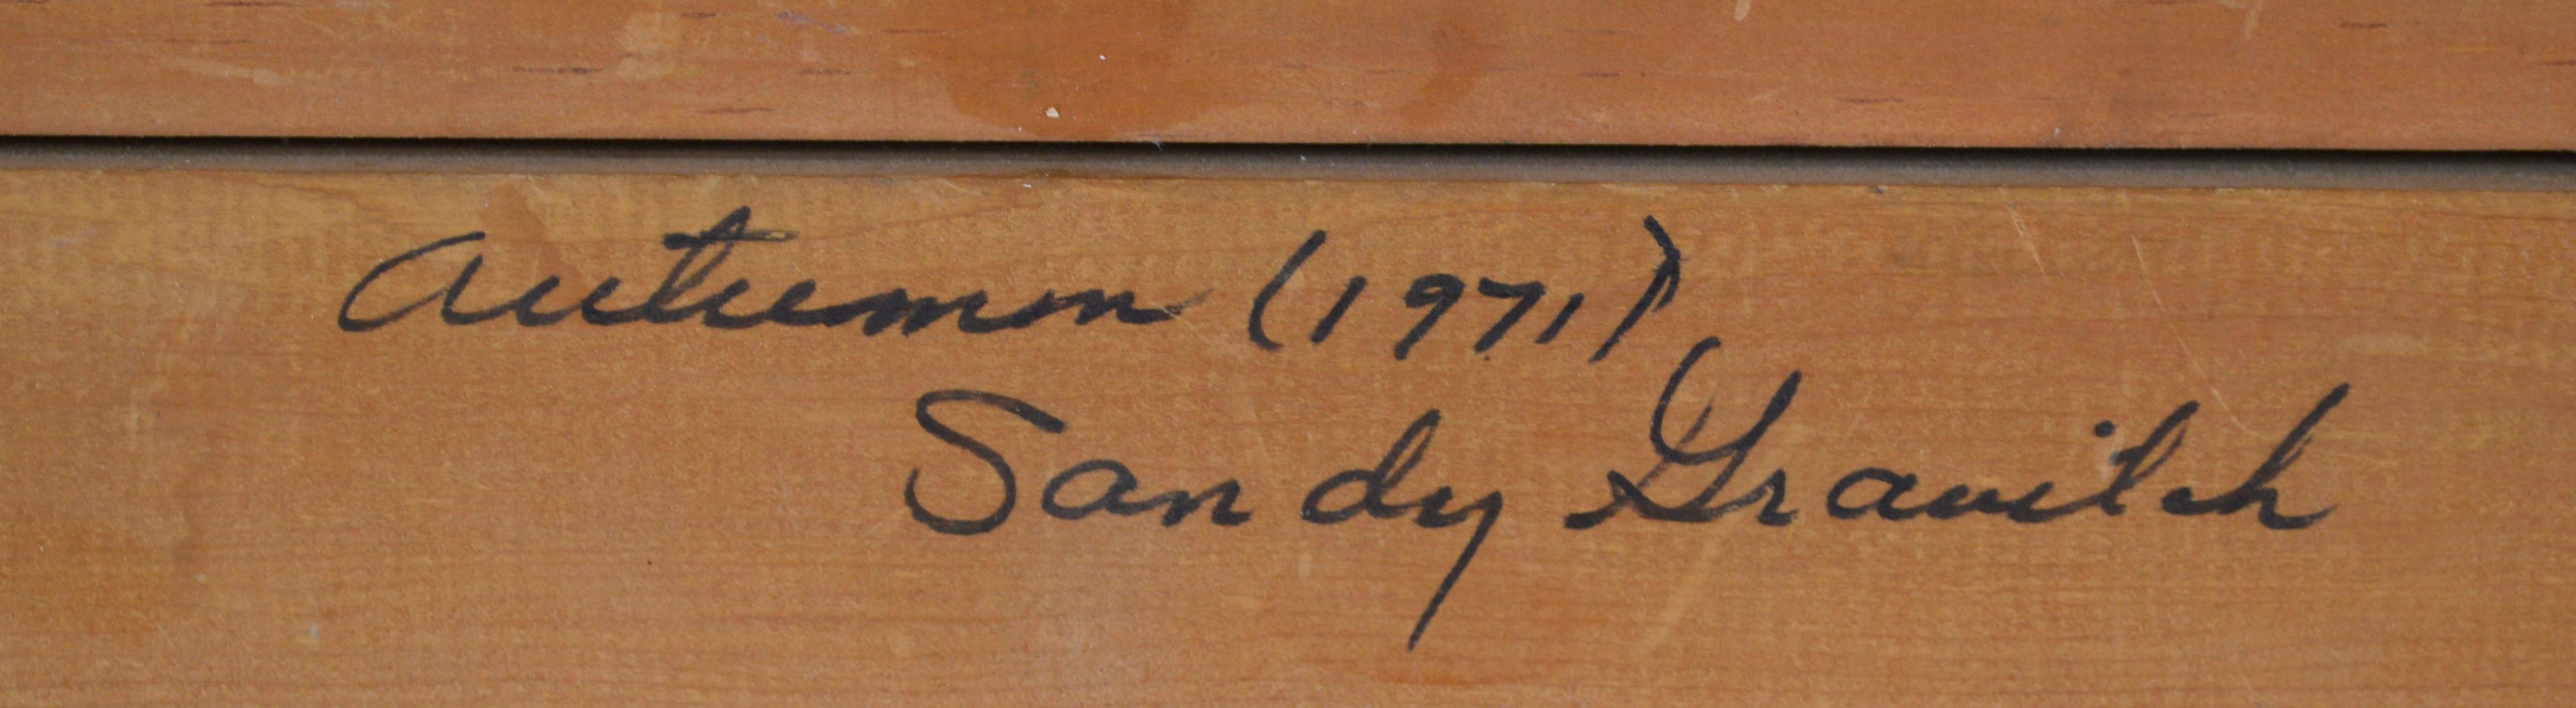 Autumn (1971)
Sandy Gravitch